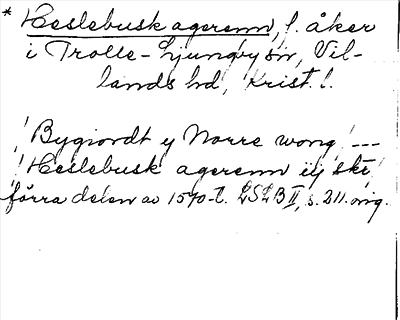 * Heslebusk agerenn, f. åker
i Trolle-Ljungby sn, Vil-
lands hd, Krist. l.
"Bygrodt y Norre wong" ---
"Heslebusk agerenn iij ske"
förra delen av 1570-t. LSLB II, s. 211. orig.